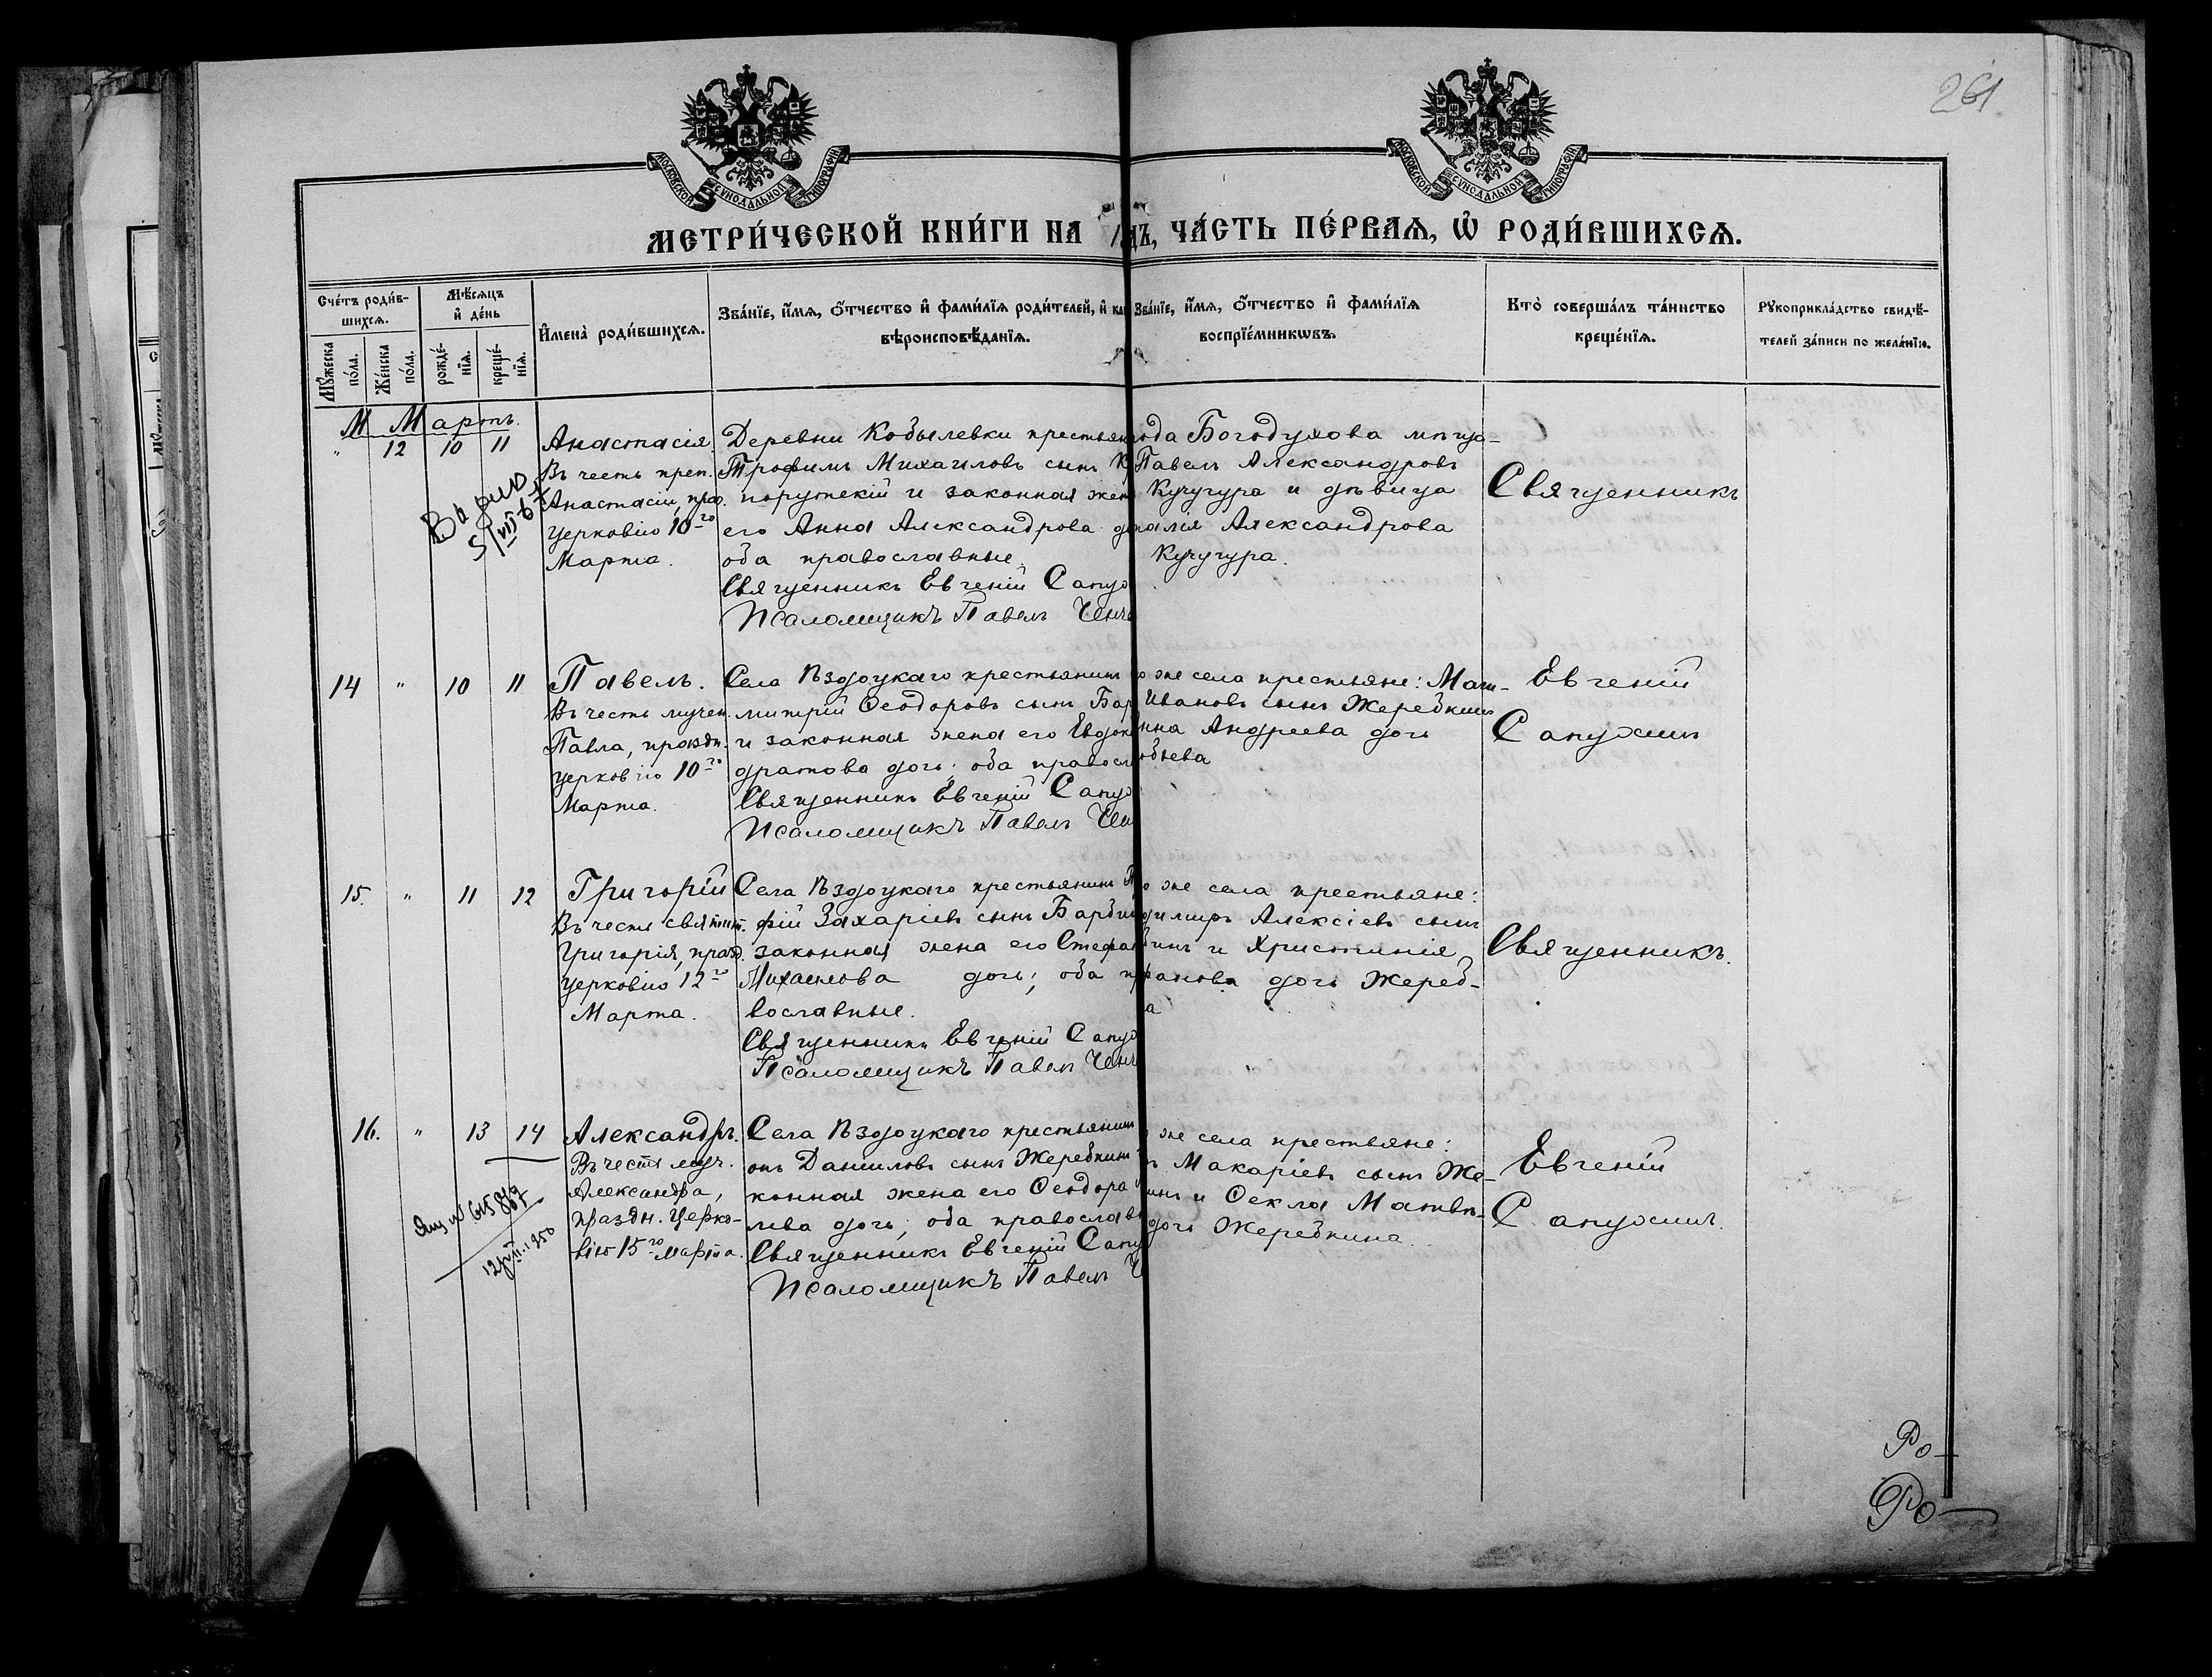 261
МОСКОВСКОЙ СѴНОДАЛЬНОЙ ТИПОГРАФІИ
МОСКОВСКОЙ СѴНОДАЛЬНОЙ ТИПОГРАФІИ
МЕТРИ́ЧЕСКОЙ КНИ́ГИ НА
ДЪ, ЧА́СТЬ ПЕ́РВАѦ, Ѡ҆ РОДИ́ВШИХСѦ.
Сче́тъ роди́в-
шихсѧ.
Мꙋ́жеска по́ла.
Же́нска по́ла.
Мѣ́сѧцъ
и҆ де́нь
рожде́-
нїѧ.
креще́-
нїѧ.
И҆мена̀ роди́вшихсѧ.
Зва́нїе, и҆́мѧ, ѻ҆́тчество и҆ фами́лїѧ роди́телей, и҆ ка
вѣроисповѣ́данїѧ.
Зва́нїе, и҆́мѧ, ѻ҆́тчество и҆ фами́лїѧ
воспрїе́мникѡвъ.
Кто̀ соверша́лъ та́инство
креще́нїѧ.
Рꙋкоприкла́дство свидѣ́-
телей за́писи по жела́нїю.
М Мартъ.
" 12 10 11
Анастасія
Въ честь преп.
Анастасіи, праз.
церковію 10го
Марта.
Деревни Кобылевки крестьян
Трофимъ Михаиловъ сынъ К
и законная жен
его Анна Александрова д
оба православные.
Священникъ Евгеній Сапух
Псаломщикъ Павелъ Ченч
ода Богодухова мѣща-
Павелъ Александровъ
Кучугура и дѣвица
талія Александрова
Кучугура.
Священникъ
14 " 10 11
Павелъ.
Въ честь мучен.
Павла, праздн.
церковію 10го
Марта.
Села Вздоцкаго крестьянинъ
митрій Ѳеодоровъ сынъ Бар
и законная жена его Евдок
дратова дочь; оба правосл
Священникъ Евгеній Сапу
Псаломщикъ Павелъ Чен
о же села крестьяне: Мат-
Ивановъ сынъ Жеребкинъ
нна Андреева дочь
обьева
Евгеній
Сапухинъ
15. " 11 12
Григорій
Въ честь святит.
Григорія, празд.
церковію 12го
Марта.
Села Вздоцкаго крестьянинъ
фій Захаріевъ сынъ Барби
законная жена его Стефан
Михаилова дочь; оба п
вославные.
Священникъ Евгеній Сапу
Псаломщикъ Павелъ Ченч
о же села крестьяне:
димиръ Алексіевъ сынъ
бинъ и Христинія
фанова дочь Жереб-
а
Священникъ.
16. " 13 14
Александръ.
Въ честь муч.
Александра,
праздн. церко-
вію 15го марта.
Села Вздоцкаго крестьянинъ
онъ Даниловъ сынъ Жеребкинъ
конная жена его Ѳеодора
лева дочь; оба православ
Священникъ Евгеній Сапу
Псаломщикъ Павелъ Ч
же села крестьяне:
ъ Макаріевъ сынъ Же-
инъ и Ѳекла Матвѣ-
дочь Жеребкина.
Евгеній
Сапухинъ.
№ 615867
Ро-
Ро-